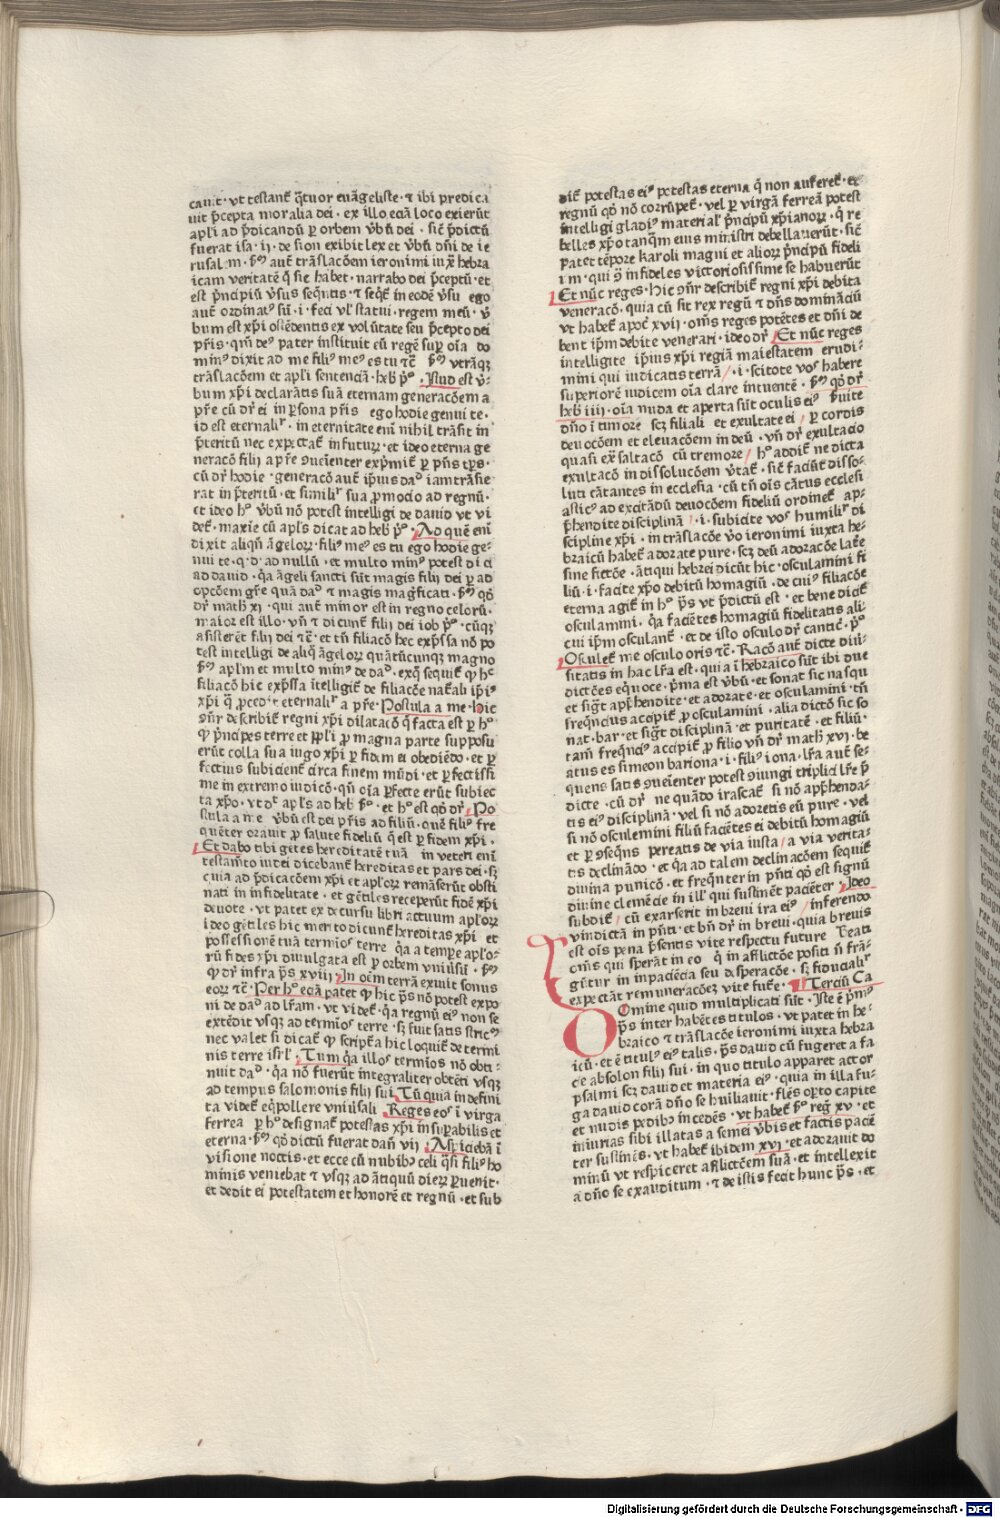 cauit · vt testant̄ q̄tuor euāgeliste · ⁊ ibi predica
uit p̄cepta moralia dei · ex illo eciā loco exierūt
apl̄i ad p̄dicandū ꝑ orbem v̄bū dei · sic̄ p̄dictū
fuerat isa · ii · de sion exibit lex et v̄bū dn̄i de ie
rusalem · sꝫ aut̄ trāslacōem ieronimi iuxͣ hebra
icam veritatē q̄ sic habet · narrabo dei p̄ceptū · et
est p̄ncipiū v̓sus seq̄ntis · ⁊ seqt̄ in eodē v̓su ego
aut̄ ordinatꝰ sū · i · feci vl̓ statui · regem meū · v̓
bum est xp̄i ostēdentis ex volūtate seu p̄cepto dei
pr̄is · qm̄ deꝰ pater instituit eū regē suꝑ oīa do
minꝰ dixit ad me filiꝰ meꝰ es tu ⁊c̄ sꝫ vtrāqꝫ
trāslacōem et apl̄i sentenciā · heb̓ pͦ · Istud est v̓
bum xp̄i declarātis suā eternam generacōem a
pr̄e cū dr̄ ei in ꝑsona pr̄is ego hodie genui te ·
id est eternalit̓ · in eternitate eni nihil trāsit in
p̄teritū nec expectat̄ in futurꝫ · et ideo eterna ge
neracō filij a pr̄e ꝯueīenter exp̄mit̄ ꝑ p̄ns tp̄s ·
cū dr̄ hodie · generacō aut̄ ip̄ius daͩ iam trāsie
rat in p̄teritū · et similit̓ sua ꝓmocio ad regnū ·
et ideo hͦ v̄bū nō potest intelligi de dauid vt vi
det̄ · maxīe cū apl̄s dicat ad heb̓ pͦ · Ad quē eni
dixit aliqn̄ āgelorꝫ · filiꝰ meꝰ es tu ego hodie ge
nui te · q · d · ad nullū · et multo minꝰ potest dici
ad dauid · q̄a āgeli sancti sūt magis filij dei ꝑ ad
opcōem gr̄e quā daͩ ⁊ magis mag̓ficati · sꝫ qͦ
dr̄ math̓ xj · qui aut̄ minor est in regno celorū ·
maior est illo · vn̄ ⁊ dicunt̄ filij dei iob pͦ · cūqꝫ
assisterēt filij dei ⁊c̄ · et tn̄ filiacō hec exp̄ssa nō po
test intelligi de aliq̄ āgelorꝫ quātūcunqꝫ magno
sꝫ apl̄m et multo minꝰ de daͩ · exq̄ sequit̄ ꝙ hec
filiacō hic exp̄ssa ītelligit̄ de filiacōe nat̄ali ip̄iꝰ
xp̄i q̄ ꝓcedit eternalit̓ a pr̄e · Postula a me · hic
ꝯn̄r describit̄ regni xp̄i dilatacō q̄ facta est ꝑ hͦ
ꝙ p̄ncipes terre et ppl̄i ꝓ magna parte supposu
erūt colla sua iugo xp̄i ꝑ fidem ei obediēdo · et ꝑ
fectius subicient̄ circa finem mūdi · et ꝑfectissi
me in extremo iudicō · qn̄ oīa ꝑfecte erūt subiec
ta xpō · vt dt̓ apl̄s ad heb̓ pͦ · et hͦ est qͦ dr̄ · Po
stula a me v̄bū est dei pr̄is ad filiū · quē filiꝰ fre
quēter orauit ꝓ salute fideliū q̄ est ꝑ fidem xp̄i ·
Et dabo tibi gētes hereditatē tuā in veteri eni
testam̄to iudei dicebant̄ hereditas et pars dei · sꝫ
cuia ad p̄dicacōem xp̄i et apl̄orꝫ remāserūt obsti
nati in infidelitate · et gētiles receperūt fidē xp̄i
deuote · vt patet ex decursu libri actuum apl̄orꝫ
ideo gētiles hic merito dicunt̄ hereditas xp̄i et
possessionē tuā termīos terre q̄a a tempe apl̄o
rū fides xp̄i diuulgata est ꝑ orbem vniu̓sū · sꝫ
qͦ dr̄ infra p̄s xviii · In oēm terrā exiuit sonus
eorꝫ ⁊c̄ · Per hͦ eciā patet ꝙ hic p̄s nō potest expo
ni de daͩ ad lr̄am · vt videt̄ · q̄a regnū eiꝰ non se
extēdit vsqꝫ ad termīos terre · sꝫ fuit satis strictꝰ
nec valet si dicat̄ ꝙ script̄a hic loquit̄ de termi
nis terre isrl̓ · Tum q̄a illos termīos nō obti
nuit daͩ · q̄a nō fuerūt integraliter obtēti vsqꝫ
ad tempus salomonis filij sui · Tū quia indefini
ta videt̄ eq̄pollere vniu̓sali · Reges eos ī virga
ferrea ꝑ hͦ designat̄ potestas xp̄i insuꝑabilis et
eterna · sꝫ qͦ dictū fuerat dan̄ vij · Aspiciebā ī
visione noctis · et ecce cū nubibꝫ celi q̄si filiꝰ ho
minis veniebat ⁊ vsqꝫ ad ātiquū dierꝫ ꝑuenit ·
et dedit ei potestatem et honorē et regnū · et sub
dit̄ potestas eiꝰ potestas eterna q̄ non auferet̄ · et
regnū qͦ nō corrūpet̄ · vel ꝑ virgā ferreā potest
intelligi gladiꝰ material̓ p̄ncipū xp̄ianorꝫ · q̄ re
belles xpō tanq̄m eius ministri debellauerūt · sic̄
patet tēpore karoli magni et aliorꝫ p̄ncipū fideli
um · qui ꝯ̄ infideles victoriosissime se habuerūt
Et nūc reges · hic ꝯn̄r describit̄ regni xp̄i debita
veneracō · quia cū sit rex regū ⁊ dn̄s dominanciū
vt habet̄ apoc̄ xvii · om̄s reges potētes et dn̄i de
bent ip̄m debite venerari · ideo dr̄ · Et nūc reges
intelligite ip̄ius xp̄i regiā maiestatem erudi
mini qui iudicatis terrā · i · scitote vos habere
superiorē iudicem oīa clare intuentē · sꝫ qͦ dr̄
heb̓ iiij · oīa nuda et aperta sūt oculis eiꝰ s̓uite
dn̄o ī timore scꝫ filiali et exultate ei ꝑ cordis
deuocōem et eleuacōem in deū · vn̄ dr̄ exultacio
quasi ex̄ saltacō cū tremore hͦ addit̄ ne dicta
exultacō in dissolucōem v̓tat̄ · sic̄ faciūt disso
luti cātantes in ecclesia · cū tn̄ oīs cātus ecclesi
asticꝰ ad excitādū deuocōem fideliū ordinet̄ ap
p̄hendite disciplinā · i · subicite vos humilit̓ di
scipline xp̄i · in trāslacōe v̓o ieronimi iuxta he
braicū habet̄ adorate pure · scꝫ deū adoracōe lat̓e
sine fictōe · ātiqui hebrei dicūt hic · osculamini fi
liū · i · facite xpō debitū homagiū · de cuiꝰ filiacōe
eterna agit̄ in hͦ p̄s vt p̄dictū est · et bene dicit̄
osculamini · q̄a faciētes homagiū fidelitatis ali
cui ip̄m osculant̄ · et de isto osculo dr̄ cantic̄ · pͦ
Osculet̄ me osculo oris ⁊c̄ · Racō aut̄ dicte diu̓
sitatis in hac lr̄a est · quia ī hebraico sūt ibi due
dictōes eq̄uoce · p̄ma est v̄bū · et sonat sic nasqu
et sig̓t app̄hendite · et adorate · et osculamini · tn̄
freq̄ncius accipit̄ ꝓ osculamini · alia dictō sic so
nat · bar · et sig̓t disciplinā · et puritatē · et filiū ·
tam̄ freq̄nciꝰ accipit̄ ꝓ filio vn̄ dr̄ math̓ xvj · be
atus es simeon bariona · i · filiꝰ iona · lr̄a aut̄ se
quens satis ꝯueīenter potest ꝯiungi triplici lr̄e p̄
dicte · cū dr̄ ne quādo irascat̄ si nō app̄henda
tis eiꝰ disciplinā · vel si nō adoretis eū pure · vel
si nō osculemini filiū faciētes ei debitū homagiū
et ꝑ ꝯseq̄ns pereatis de via iusta a via verita
tis declinādo · et q̄a ad talem declinacōem sequit̄
diuina punicō · et freq̄nter in p̄nti qͦ est signū
diuine clemēcie in ill̓ qui sustinēt paciēter · Ideo
subdit̄ cū exarserit in breui ira eiꝰ inferendo
vindictā in p̄nti · et bn̄ dr̄ in breui · quia breuis
est oīs pena p̄sentis vite respectu future Beati
om̄s qui sperāt in eo q̄ in afflictōe positi n̄ frā
gūtur in inpaciēcia seu desperacōe · sꝫ fiducialit̓
expectāt remuneracōeꝫ vite fut̓e · Terciū Ca
Domine quid multiplicati sūt · Iste ē p̄mꝰ
p̄s inter habētes titulos · vt patet in he
braico ⁊ trāslacōe ieronimi iuxta hebra
icū · et ē titulꝰ eiꝰ talis · p̄s dauid cū fugeret a fa
cie absolon filij sui · in quo titulo apparet actor
psalmi scꝫ dauid et materia eiꝰ · quia in illa fu
ga dauid corā dn̄o se hūiliauit · flēs oꝑto capite
et nudis pedibꝫ incedēs · vt habet̄ sꝫ reg̓ xv · et
iniurias sibi illatas a semei v̓bis et factis paciē
ter sustinēs · vt habet̄ ibidem xvj · et adorauit do
minū vt respiceret afflictōem suā · et intellexit
a dn̄o se exauditum · ⁊ de istis fecit hunc p̄s · et
Digitalisierung gefördert durch die Deutsche Forschungsgemeinschaft - DFG